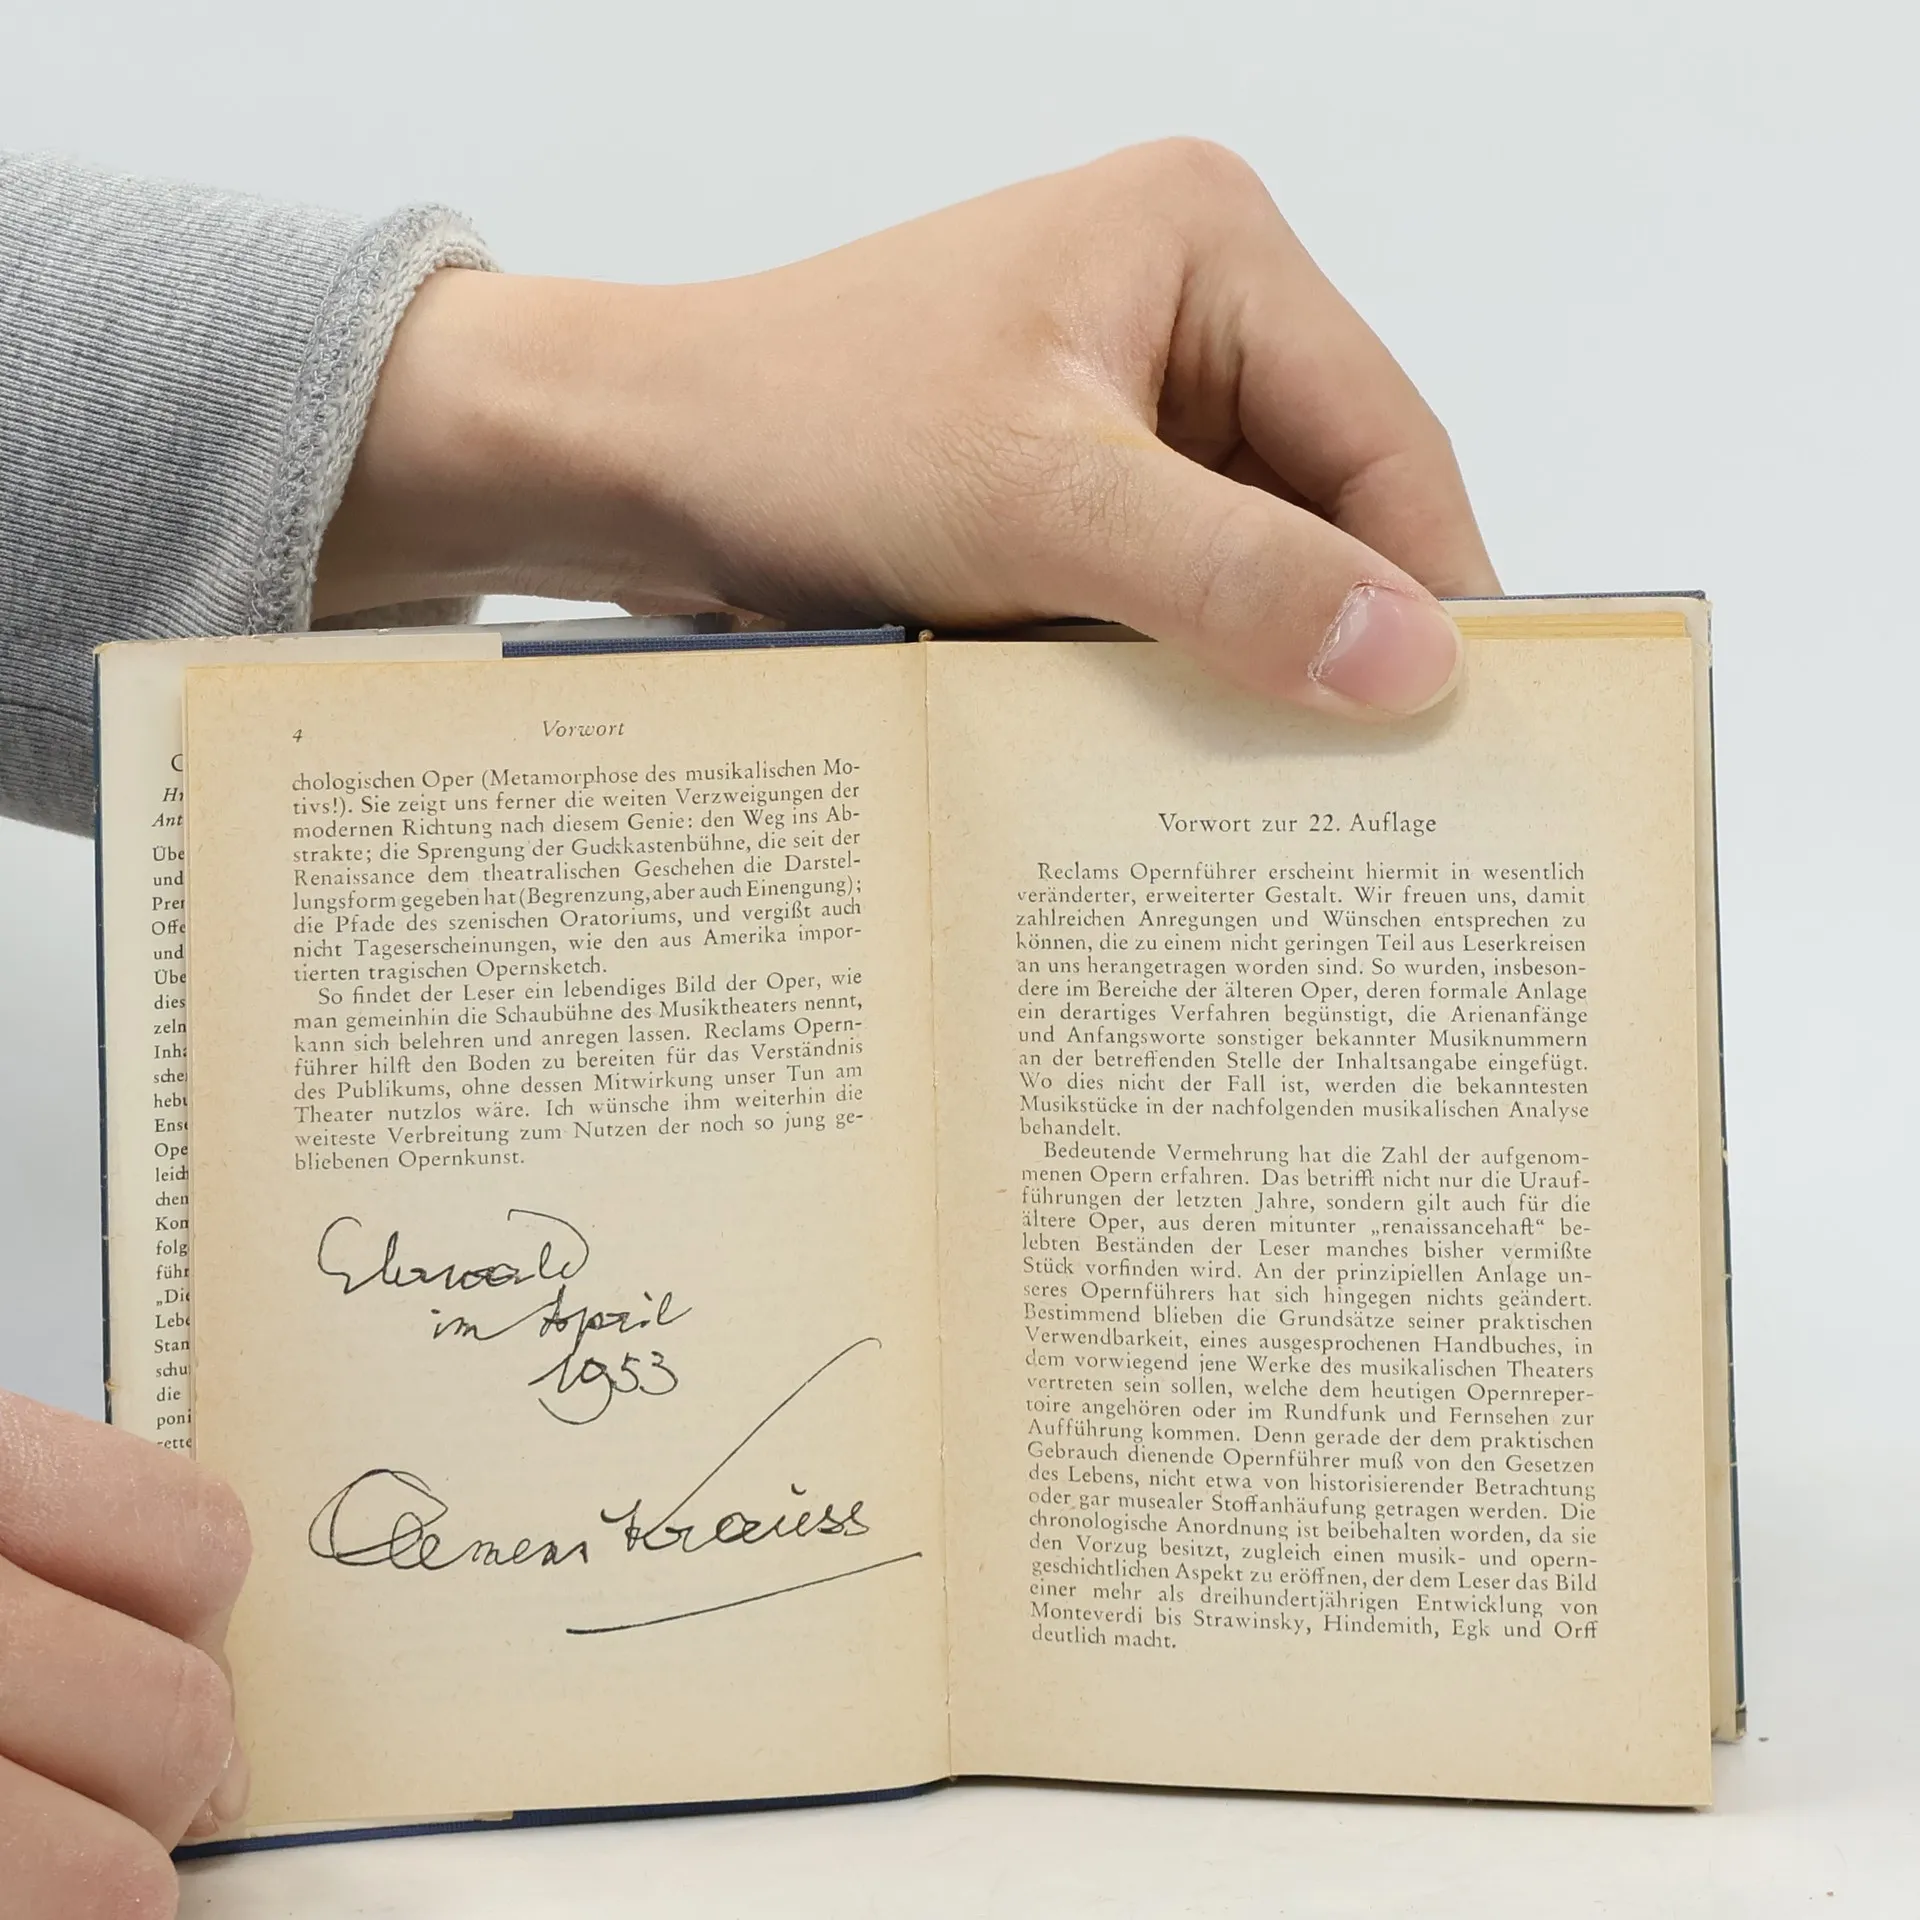 4
Vorwort
chologischen Oper (Metamorphose des musikalischen Mo-
tivs!). Sie zeigt uns ferner die weiten Verzweigungen der
modernen Richtung nach diesem Genie: den Weg ins Ab-
strakte; die Sprengung der Guckkastenbühne, die seit der
Renaissance dem theatralischen Geschehen die Darstel-
lungsform gegeben hat (Begrenzung, aber auch Einengung);
die Pfade des szenischen Oratoriums, und vergißt auch
nicht Tageserscheinungen, wie den aus Amerika impor-
tierten tragischen Opernsketch.
So findet der Leser ein lebendiges Bild der Oper, wie
man gemeinhin die Schaubühne des Musiktheaters nennt,
kann sich belehren und anregen lassen. Reclams Opern-
führer hilft den Boden zu bereiten für das Verständnis
des Publikums, ohne dessen Mitwirkung unser Tun am
Theater nutzlos wäre. Ich wünsche ihm weiterhin die
weiteste Verbreitung zum Nutzen der noch so jung ge-
bliebenen Opernkunst.
im April
1953
Clemens Krauss
Vorwort zur 22. Auflage
Reclams Opernführer erscheint hiermit in wesentlich
veränderter, erweiterter Gestalt. Wir freuen uns, damit
zahlreichen Anregungen und Wünschen entsprechen zu
können, die zu einem nicht geringen Teil aus Leserkreisen
an uns herangetragen worden sind. So wurden, insbeson-
dere im Bereiche der älteren Oper, deren formale Anlage
ein derartiges Verfahren begünstigt, die Arienanfänge
und Anfangsworte sonstiger bekannter Musiknummern
an der betreffenden Stelle der Inhaltsangabe eingefügt.
Wo dies nicht der Fall ist, werden die bekanntesten
Musikstücke in der nachfolgenden musikalischen Analyse
behandelt.
Bedeutende Vermehrung hat die Zahl der aufgenom-
menen Opern erfahren. Das betrifft nicht nur die Urauf-
führungen der letzten Jahre, sondern gilt auch für die
ältere Oper, aus deren mitunter „renaissancehaft“ be-
lebten Beständen der Leser manches bisher vermißte
Stück vorfinden wird. An der prinzipiellen Anlage un-
seres Opernführers hat sich hingegen nichts geändert.
Bestimmend blieben die Grundsätze seiner praktischen
Verwendbarkeit, eines ausgesprochenen Handbuches, in
dem vorwiegend jene Werke des musikalischen Theaters
vertreten sein sollen, welche dem heutigen Opernreper-
toire angehören oder im Rundfunk und Fernsehen zur
Aufführung kommen. Denn gerade der dem praktischen
Gebrauch dienende Opernführer muß von den Gesetzen
des Lebens, nicht etwa von historisierender Betrachtung
oder gar musealer Stoffanhäufung getragen werden. Die
chronologische Anordnung ist beibehalten worden, da sie
den Vorzug besitzt, zugleich einen musik- und opern-
geschichtlichen Aspekt zu eröffnen, der dem Leser das Bild
einer mehr als dreihundertjährigen Entwicklung von
Monteverdi bis Strawinsky, Hindemith, Egk und Orff
deutlich macht.